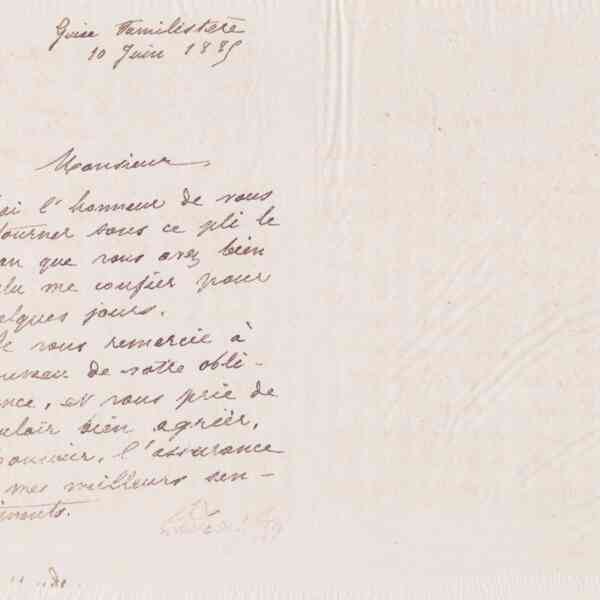 Guise Familistère
10 Juin 1885
Monsieur
ai l'honneur de vous
tourner sous ce pli le
an que vous avez bien
lu me confier pour
elques jours.
Je vous remercie à
uveau de votre obli-
ance, et vous prie de
uloir bien agréer,
onsieur, l'assurance
mes meilleurs sen-
iments.